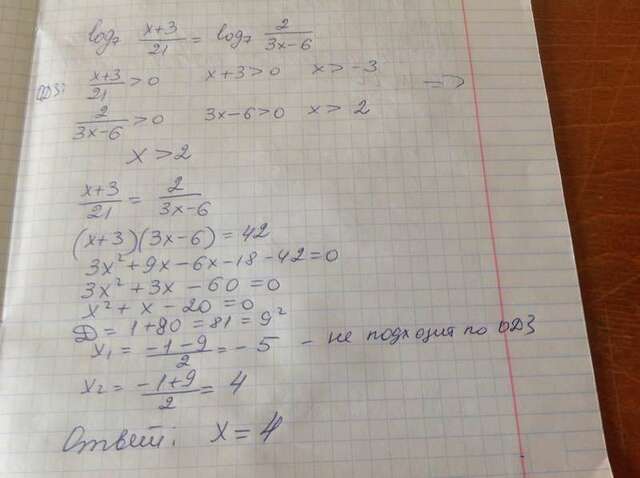 log₇ (x+3)/21 = log₇ 2/(3x-6)
ОДЗ: (x+3)/21 > 0 x+3>0 x>-3 =>
2/(3x-6) > 0 3x-6>0 x>2
x>2
(x+3)/21 = 2/(3x-6)
(x+3)(3x-6)=42
3x²+9x-6x-18-42=0
3x²+3x-60=0
x²+x-20=0
Д=1+80=81=9²
x₁=(-1-9)/2=-5 - не подходит по ОДЗ
x₂=(-1+9)/2=4
Ответ: x=4